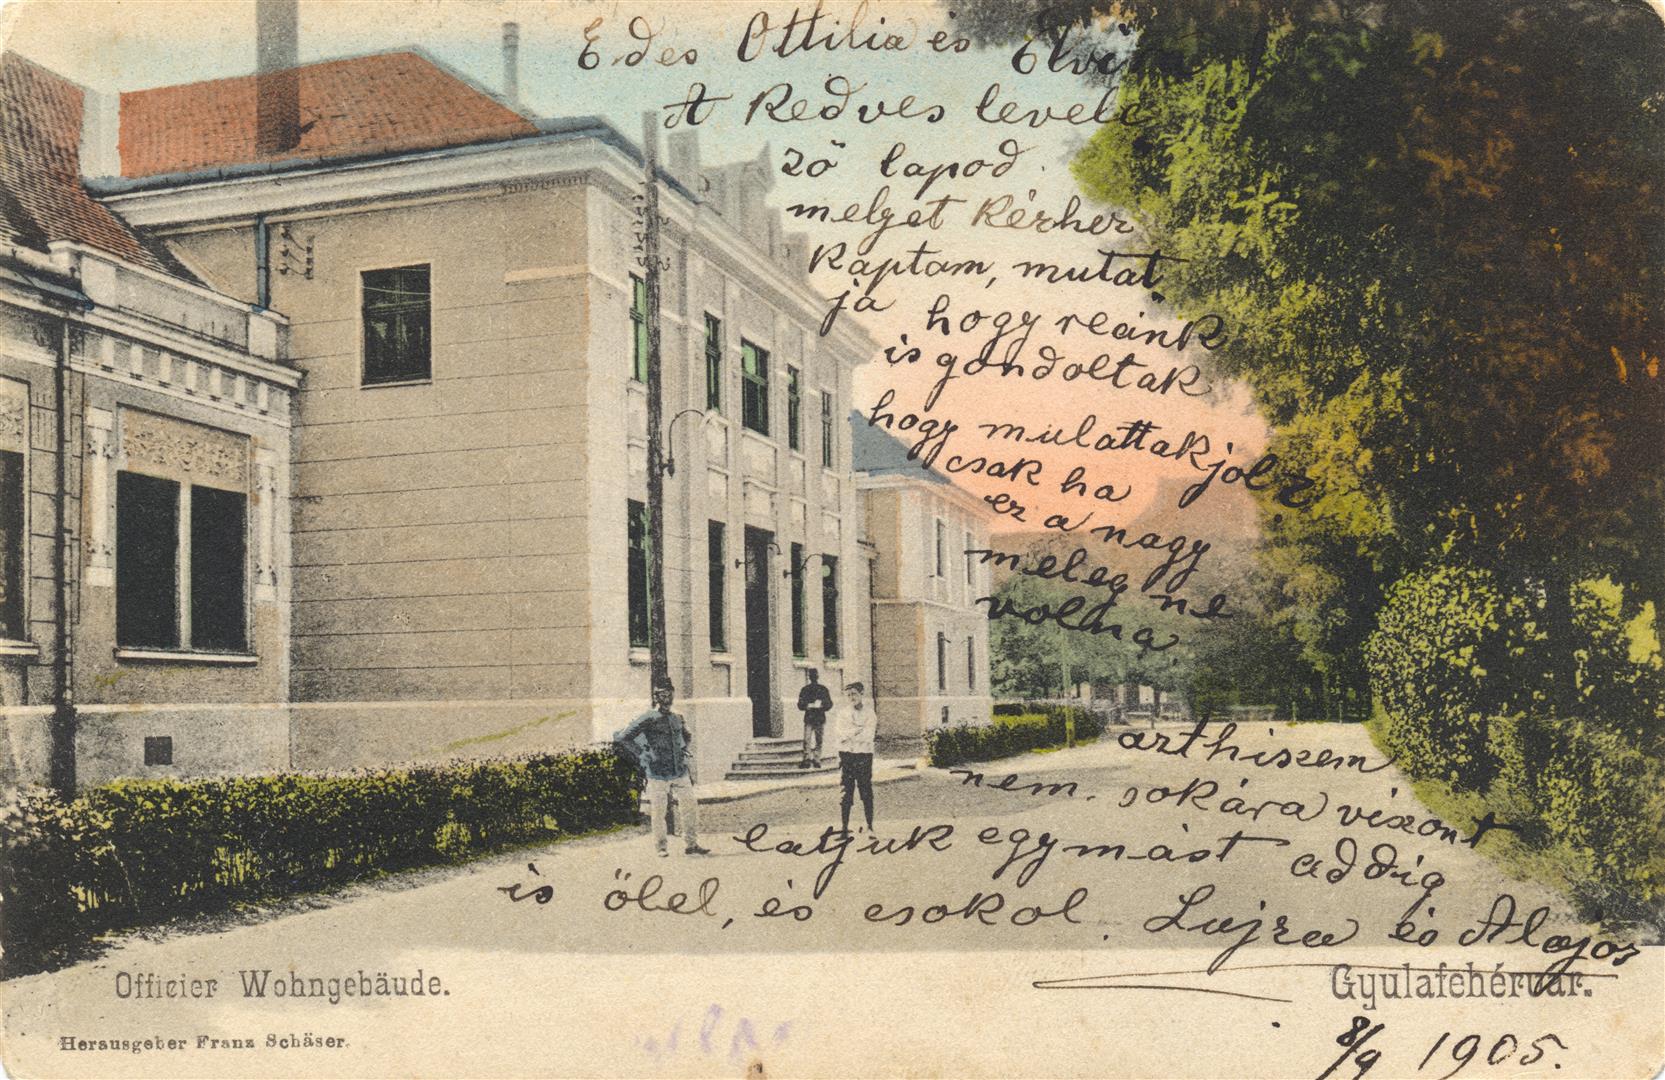 Edes Ottilia és Elvira!
A Kedves levele
ző lapod
melyet Kézhez
Kaptam, mutat
ja hogy reánk
is gondoltak
hogy mulattak jol?
csak ha
ez a nagy
meleg ne
volna
azthiszem
nem sokára viszont
latjuk egymást addig
is ölel, és csokol. Lujza és Alajos
Officier Wohngebäude.
Gyulafehérvár.
Herausgeber Franz Schäser.
8/9 1905.